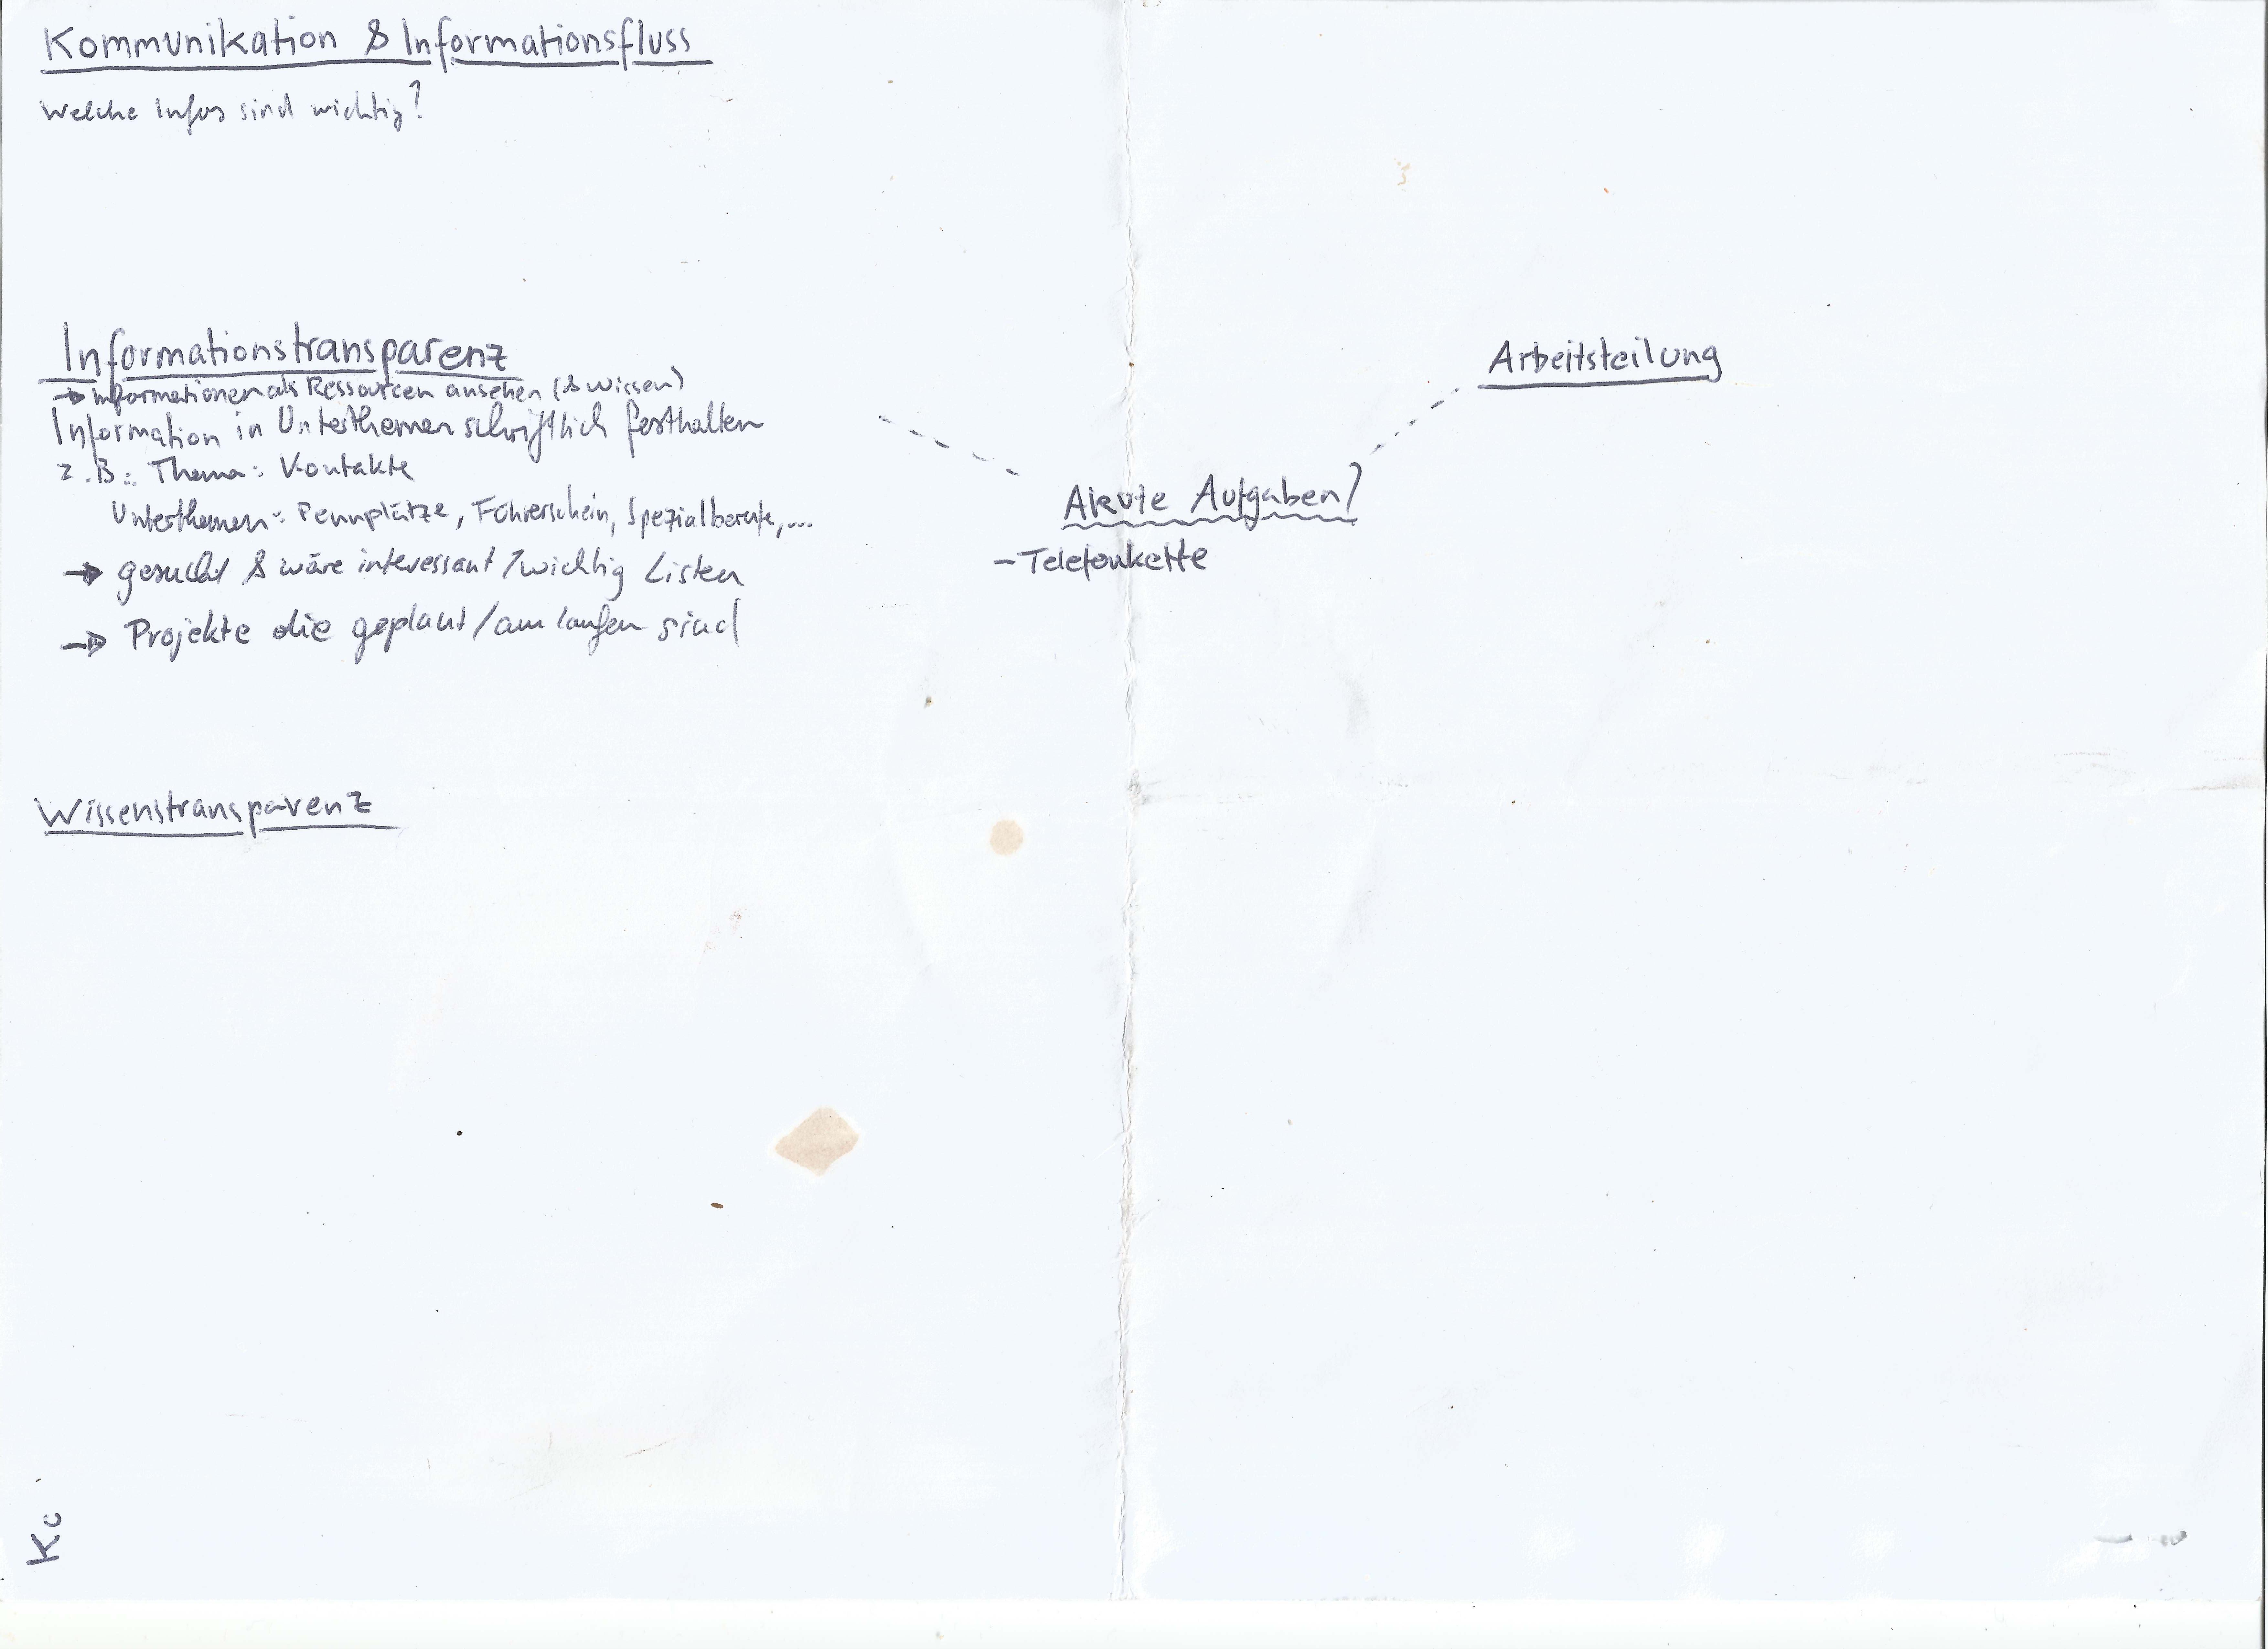 Kommunikation & Informationsfluss
Welche Infos sind wichtig?
Informationstransparenz
→ informationen als Ressourcen ansehen (& Wissen)
Information in Unterthemen schriftlich festhalten
z.B.: Thema: Kontakte
Unterthemen: Pennplätze, Führerschein, Spezialberufe,...
→ gesucht & wäre interessant/wichtig Listen
→ Projekte die geplant/am laufen sind
Arbeitsteilung
Akute Aufgaben?
- Telefonkette
Wissenstransparenz
Ko